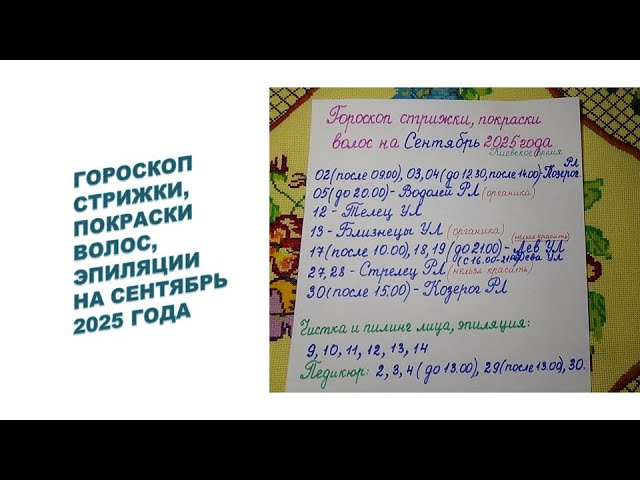 ГОРОСКОП
СТРИЖКИ,
ПОКРАСКИ
ВОЛОС,
ЭПИЛЯЦИИ
НА СЕНТЯБРЬ
2025 ГОДА
Гороскоп стрижки, покраски
волос на Сентябрь 2025 года
Киевское время
02 (после 09.00), 03, 04 (до 12.30, после 14.00) - Козерог РЛ
05 (до 20.00) - Водолей РЛ (органика)
12 - Телец УЛ
13 - Близнецы УЛ (органика)
17 (после 10.00), 18, 19 (до 21.00) - Лев УЛ (нельзя красить)
(с 16.00- Дева УЛ
27, 28 - Стрелец РЛ (нельзя красить)
30 (после 15.00) - Козерог РЛ
Чистка и пилинг лица, эпиляция:
9, 10, 11, 12, 13, 14
Педикюр: 2, 3, 4 (до 13.00), 29 (после 13.00), 30.